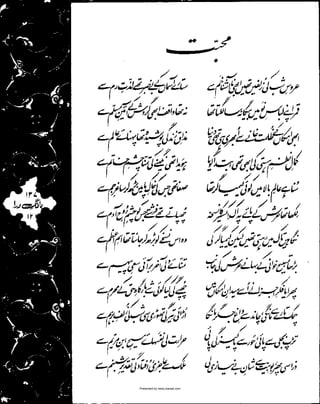 محبت
عروسِ شب کی زلفیں تھیں ابھی ناآشنا خم سے
ستارے آسماں کے بے خبر تھے لذتِ رم سے
قمر اپنے لباسِ نو میں بیگانہ سا لگتا تھا
نہ تھا واقف ابھی گردش کے آئینِ مسلم سے
ابھی امکاں کے ظلمت خانے سے ابھری ہی تھی دنیا
مذاقِ زندگی پوشیدہ تھا پہنائے عالم سے
کمالِ نظمِ ہستی کی ابھی تھی ابتدا گویا
ہویدا تھی نگینے کی تمنا چشمِ خاتم سے
سنا ہے عالمِ بالا میں کوئی کیمیاگر تھا
صفا تھی جس کی خاکِ پا میں بڑھ کر ساغرِ جم سے
لکھا تھا عرش کے پائے پہ اک اکسیر کا نسخہ
چھپاتے تھے فرشتے جس کو چشمِ روحِ آدم سے
نگاہیں تاک میں رہتی تھیں لیکن کیمیاگر کی
وہ اس نسخے کو بڑھ کر جانتا تھا اسمِ اعظم سے
بڑھا تسبیح خوانی کے بہانے عرش کی جانب
تمنائے دلی آخر بر آئی سعیِ پیہم سے
پھرایا فکرِ اجزا نے اسے میدانِ امکاں میں
چھپے گی کیا کوئی شے بارگاہِ حق کے محرم سے
چمک تارے سے مانگی چاند سے داغِ جگر مانگا
اڑائی تیرگی تھوڑی سی شب کی زلفِ برہم سے
تڑپ بجلی سے پائی حور سے پاکیزگی پائی
حرارت لی نفسہائے مسیحِ ابنِ مریم سے
ذرا سی پھر ربوبیت سے شانِ بے نیازی لی
ملک سے عاجزی افتادگی تقدیرِ شبنم سے
بانگِ درا
Presented by www.ziaraat.com